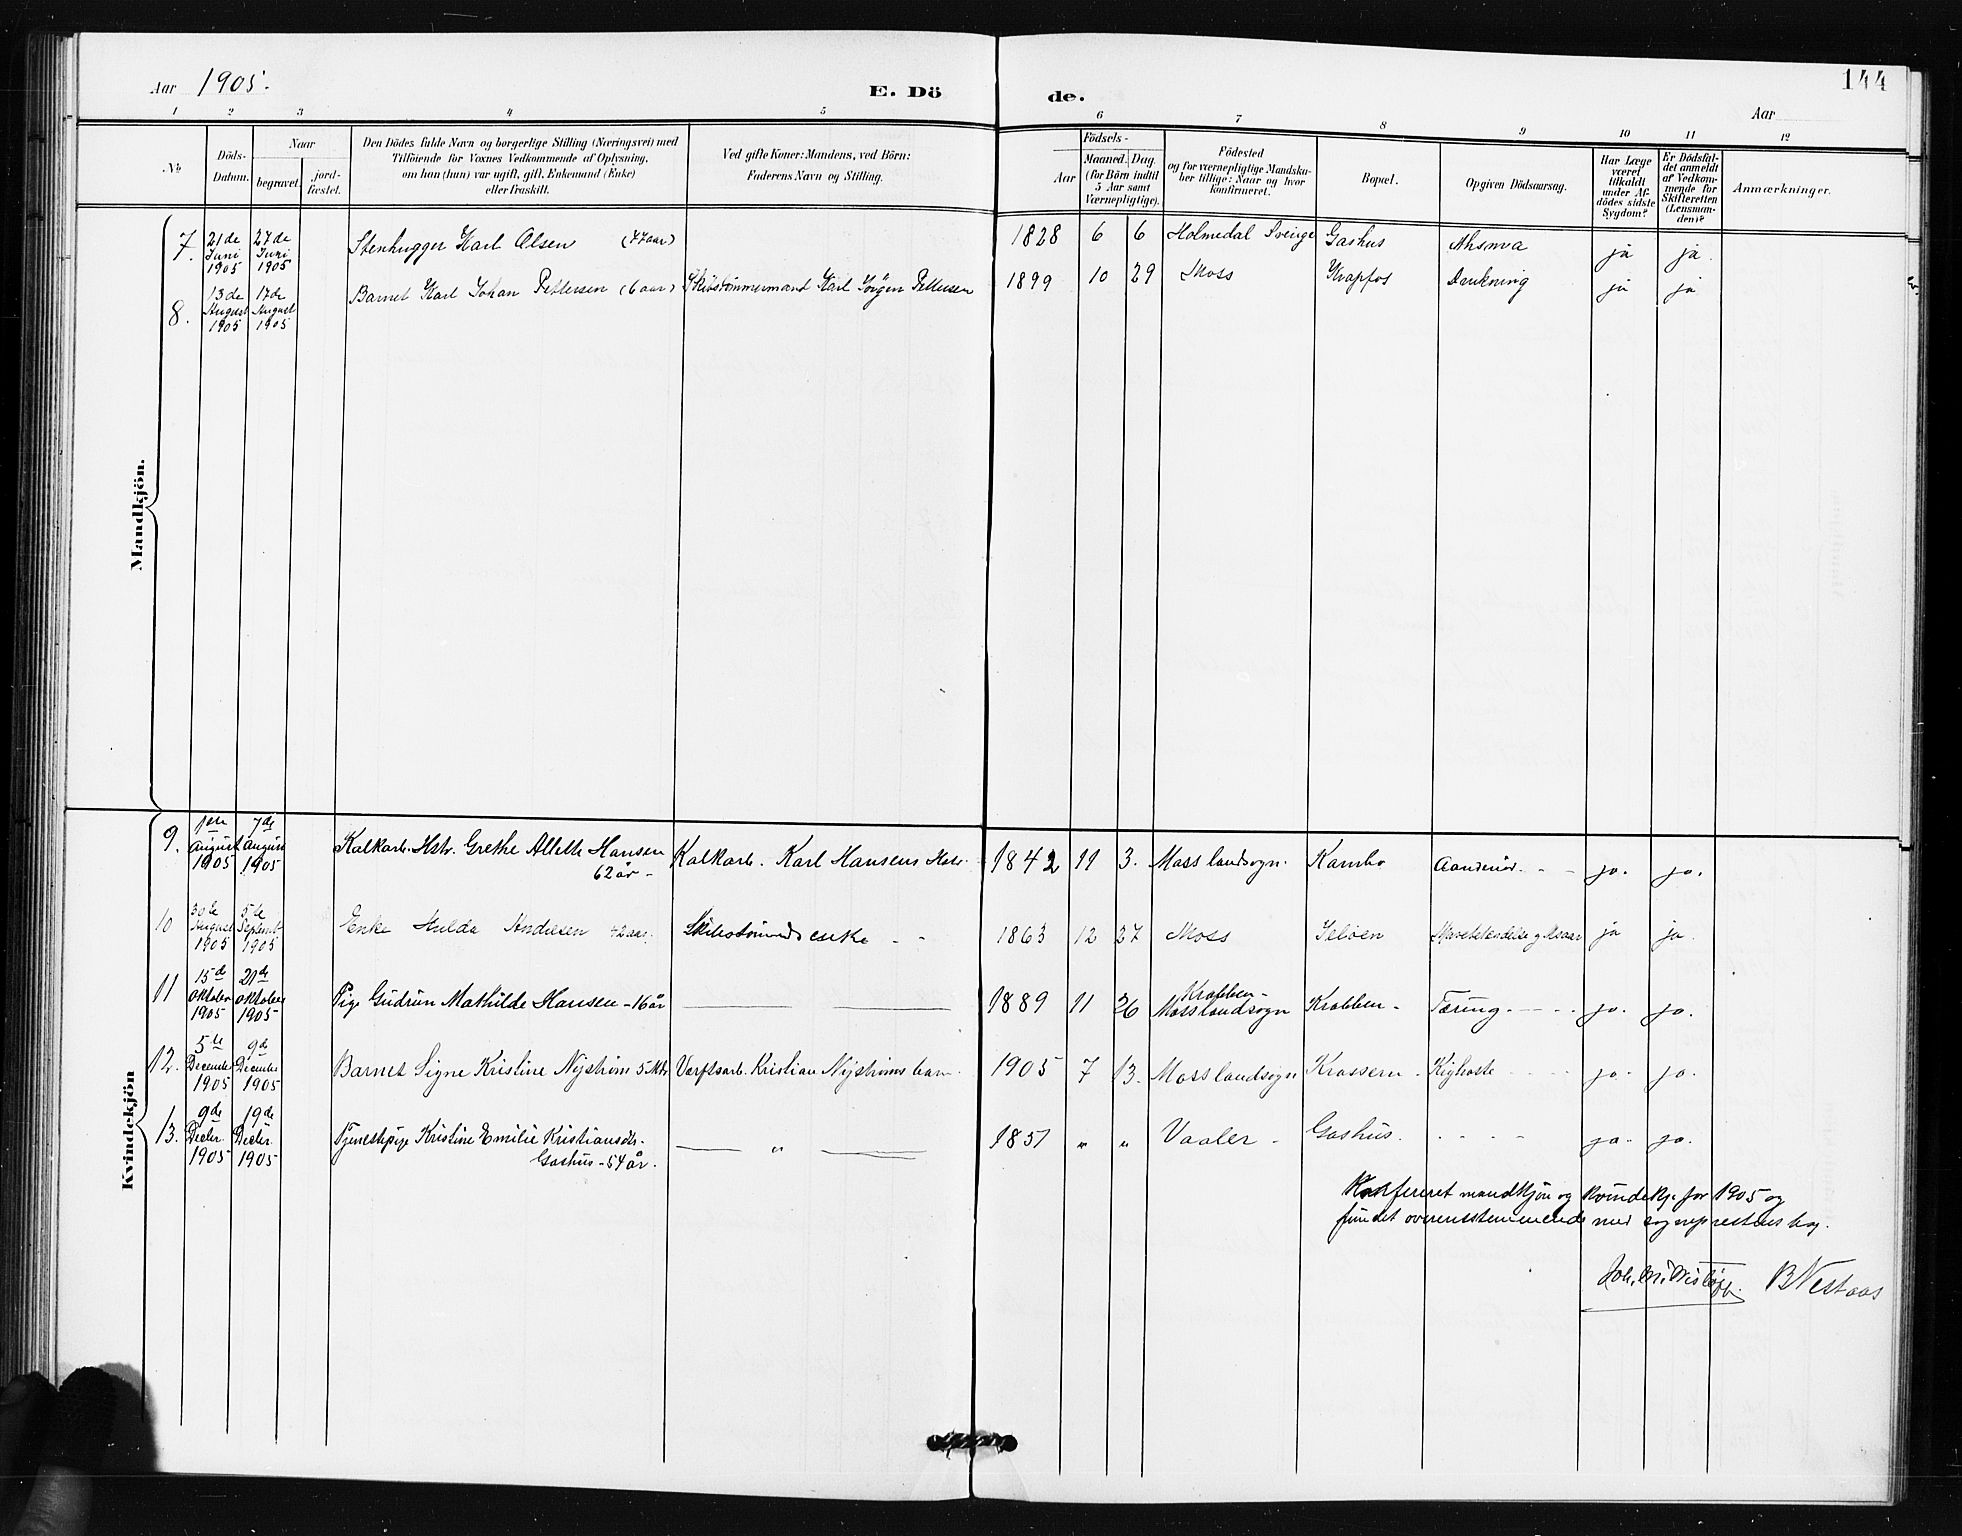 Aar 1905.
E. Döde.
Aar
144
1 2 3 4 5 6 7 8 9 10 11 12
No
Döds-Datum.
Naar
begravet.
jord-fæstet.
Den Dödes fulde Navn og borgerlige Stilling (Næringsvei) med
Tilföiende for Voxnes Vedkommende af Oplysning,
om han (hun) var ugift, gift, Enkemand (Enke)
eller fraskilt.
Ved gifte Koner: Mandens, ved Börn:
Faderens Navn og Stilling.
Födsels-
Aar
Maaned. Dag.
(for Börn indtil
5 Aar samt
Værnepligtige).
Födested
og for værnepligtige Mandskaber tillige: Naar og hvor
konfirmeret.
Bopæl.
Opgiven Dödsaarsag.
Har Læge
været
tilkaldt
under Afdödes sidste
Sygdom?
Er Dödsfaldet anmeldt
af Vedkommende for
Skifteretten
(Lensmanden)?
Anmærkninger.
Mandkjön.
7. 21de Juni 1905 27de Juni 1905 Stenhugger Karl Olsen (77 aar) 1828 6 6 Holmedal Sverige Gashus ja ja.
8. 13de August 1905 17de August 1905 Barnet Karl Johan Pettersen (6 aar) Skibstømmermand Karl Jørgen Pettersen 1899 10 29 Moss Krapfos Drukning ja ja
Kvindekjön
9. 1ste August 1905 7de August 1905 Kalkarb. Hstr. Grethe Allette Hansen 62 år - Kalkarb. Karl Hansens Hstr. 1842 11 3. Moss landsogn. Kambo Aandenød. - - ja. ja.
10 30te August 1905 5te Septemb 1905 Enke Hulda Andresen 42 aar. Skibstømmdsenke - - 1863 12 27 Moss Jeløen ja ja
11 15de Oktober 1905 20de Oktober 1905 Pige Gudrun Mathilde Hansen - 16 år 1889 11 26 Krabben - Moss landsogn Krabben - Tæring. - - - ja. ja.
12. 5te December 1905 9de December 1905 Barnet Signe Kristine Nyström 5 Mdr Værftsarb. Kristian Nyströms barn. 1905 7 13. Moss landsogn Krossern. Kighoste - - - ja. ja.
13. 9de Decbr. 1905 19de Decbr. 1905 Tjenestepige Kristine Emilie Kristiansdtr. Gashus - 54 år. " 1851 " " Vaaler - Gashus. - - - - ja. ja.
Konfereret mandkjøn og kvindekj. for 1905 og
fundet overensstemmende med sogneprestens bog.
B Nestaas